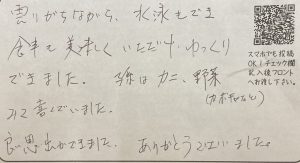 雲りがちながら、水泳もでき
食事も美味しくいただき、ゆっくり
できました。孫はカニ、野菜
(カボチャなど)
みて喜んでいました。
良い思い出ができました。ありがとうございました。
スマホでも投稿
OK！チェック欄
記入後フロント
へお渡し下さい。